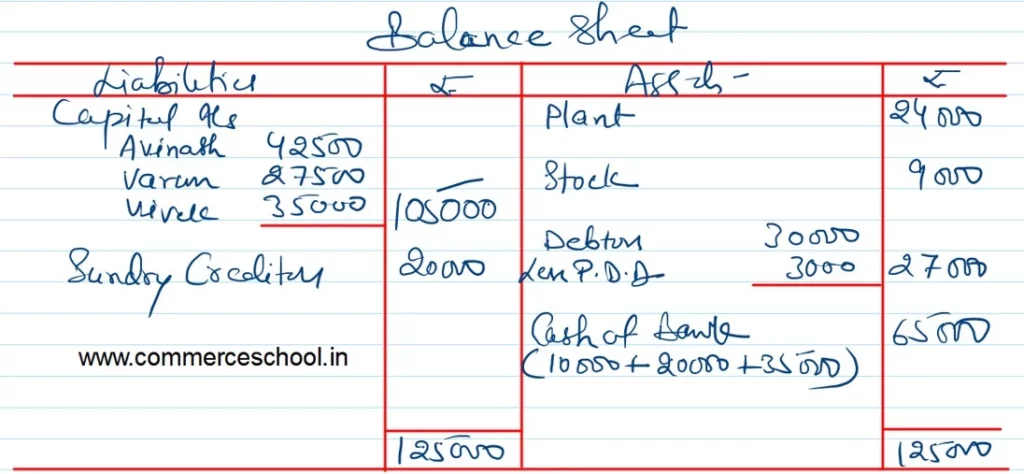 Balance Sheet
Liabilities ₹ Assets ₹
Capital A/cs Plant 24000
Avinash 42500
Varun 27500 Stock 9000
Vivek 35000 105000
Debtors 30000
Sundry Creditors 20000 Less P.D.D 3000 27000
Cash at Bank 65000
www.commerceschool.in (10000+20000+35000)
125000 125000